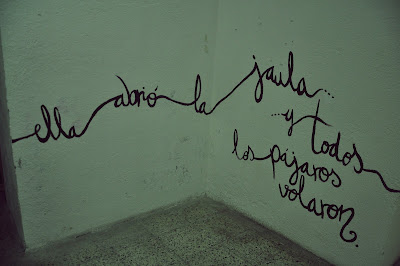 ella abrió la jaula...
...y todos
los pájaros
volaron.